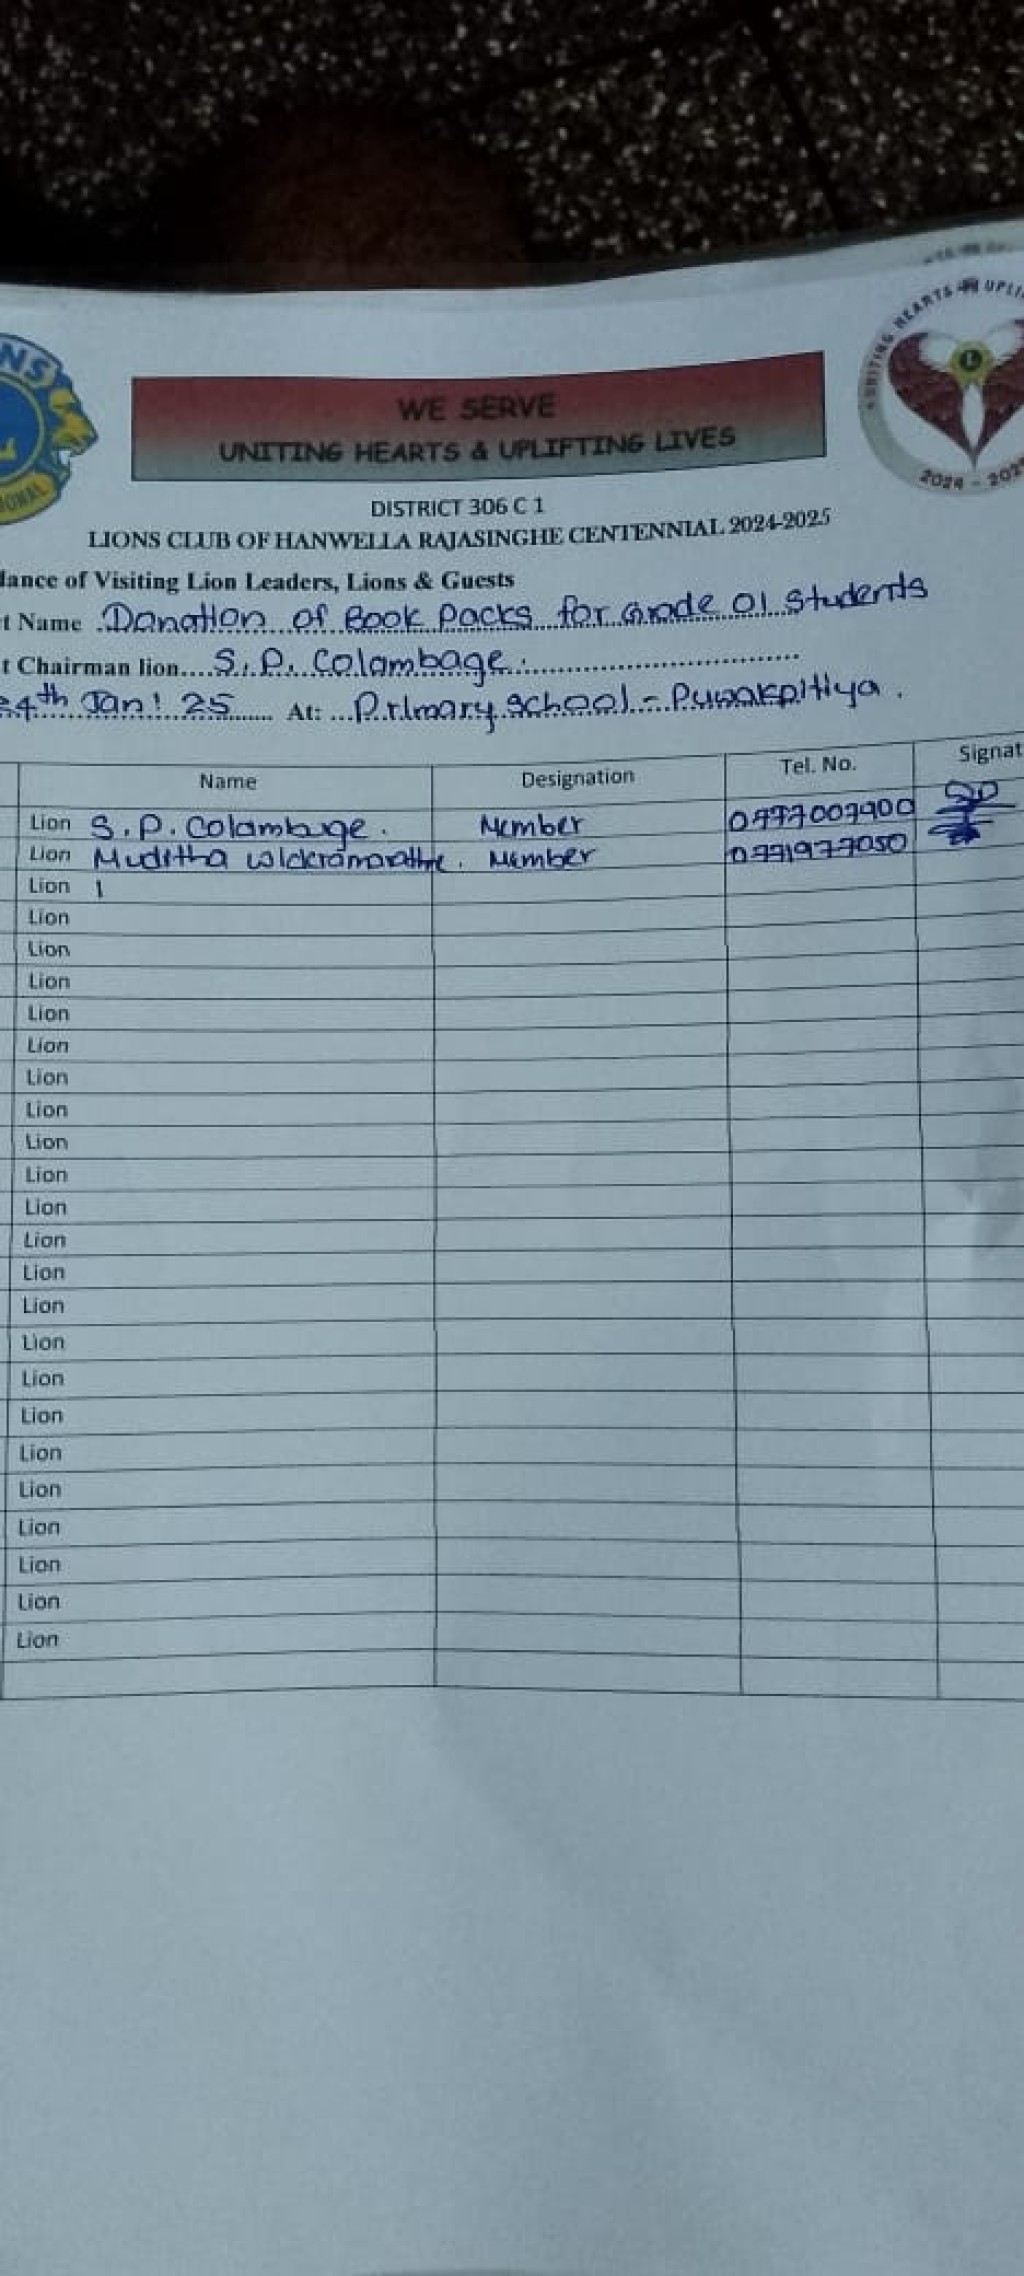 NS
L
ONAL
UNITING HEARTS UPLI
2024 - 202
WE SERVE
UNITING HEARTS & UPLIFTING LIVES
DISTRICT 306 C 1
LIONS CLUB OF HANWELLA RAJASINGHE CENTENNIAL 2024-2025
dance of Visiting Lion Leaders, Lions & Guests
t Name Donation of Book Packs for Grade 01 Students
t Chairman lion S.P. Colambage
24th Jan! 25 At: Primary School - Puwakpitiya.
Name Designation Tel. No. Signat
Lion S.P. Colambage. Member 0777007900
Lion Muditha Wickramarathne. Member 0771977050
Lion 1
Lion
Lion
Lion
Lion
Lion
Lion
Lion
Lion
Lion
Lion
Lion
Lion
Lion
Lion
Lion
Lion
Lion
Lion
Lion
Lion
Lion
Lion